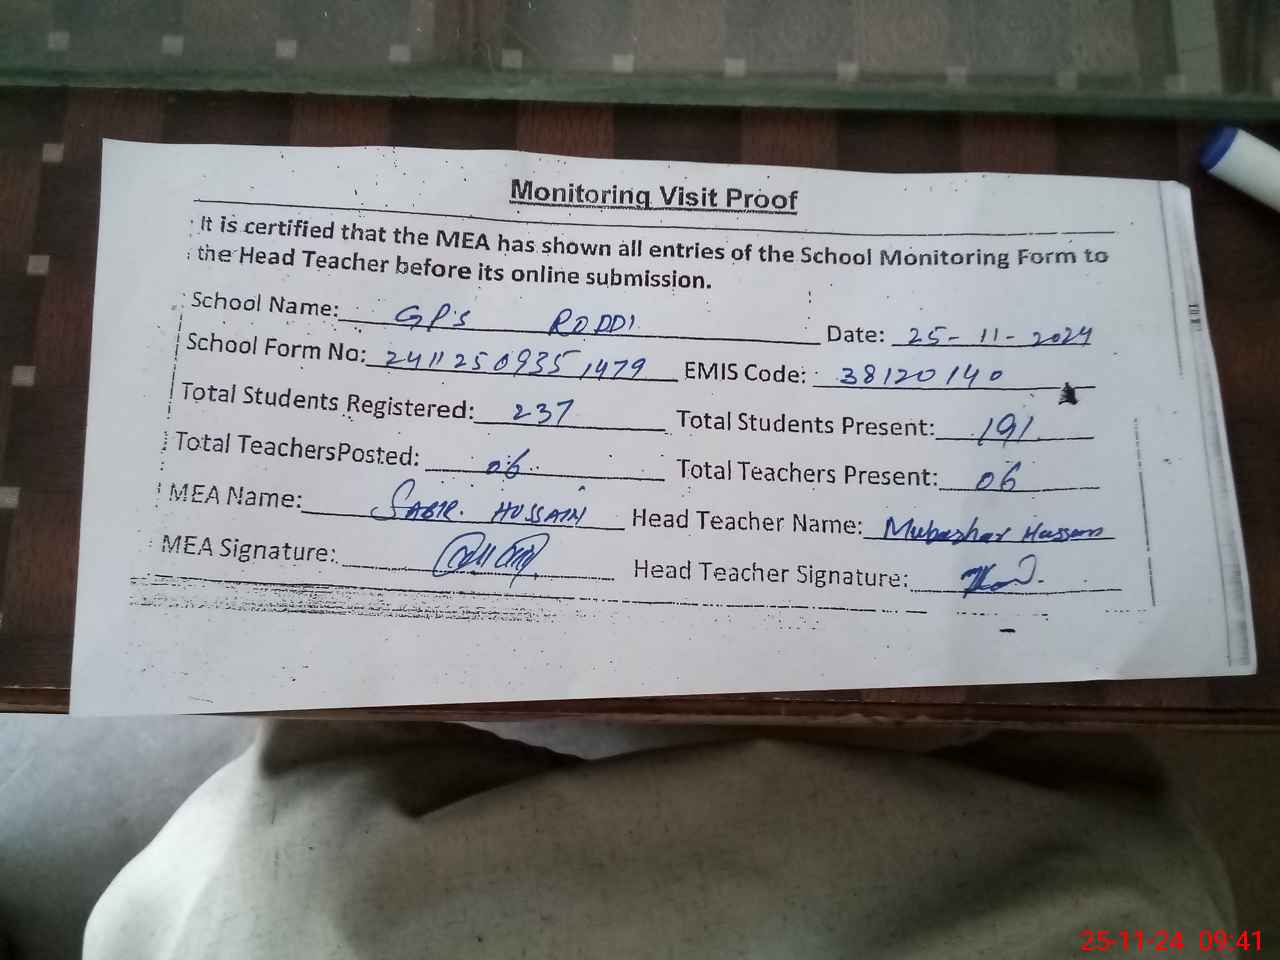 Monitoring Visit Proof
It is certified that the MEA has shown all entries of the School Monitoring Form to
the Head Teacher before its online submission.
School Name: GPS RODDI Date: 25-11-2024
School Form No: 24112509351479 EMIS Code: 38120140
Total Students Registered: 237 Total Students Present: 191
Total TeachersPosted: 06 Total Teachers Present: 06
MEA Name: SABIR. HUSSAIN Head Teacher Name: Mubashar Hassan
MEA Signature: Head Teacher Signature:
25-11-24 09:41